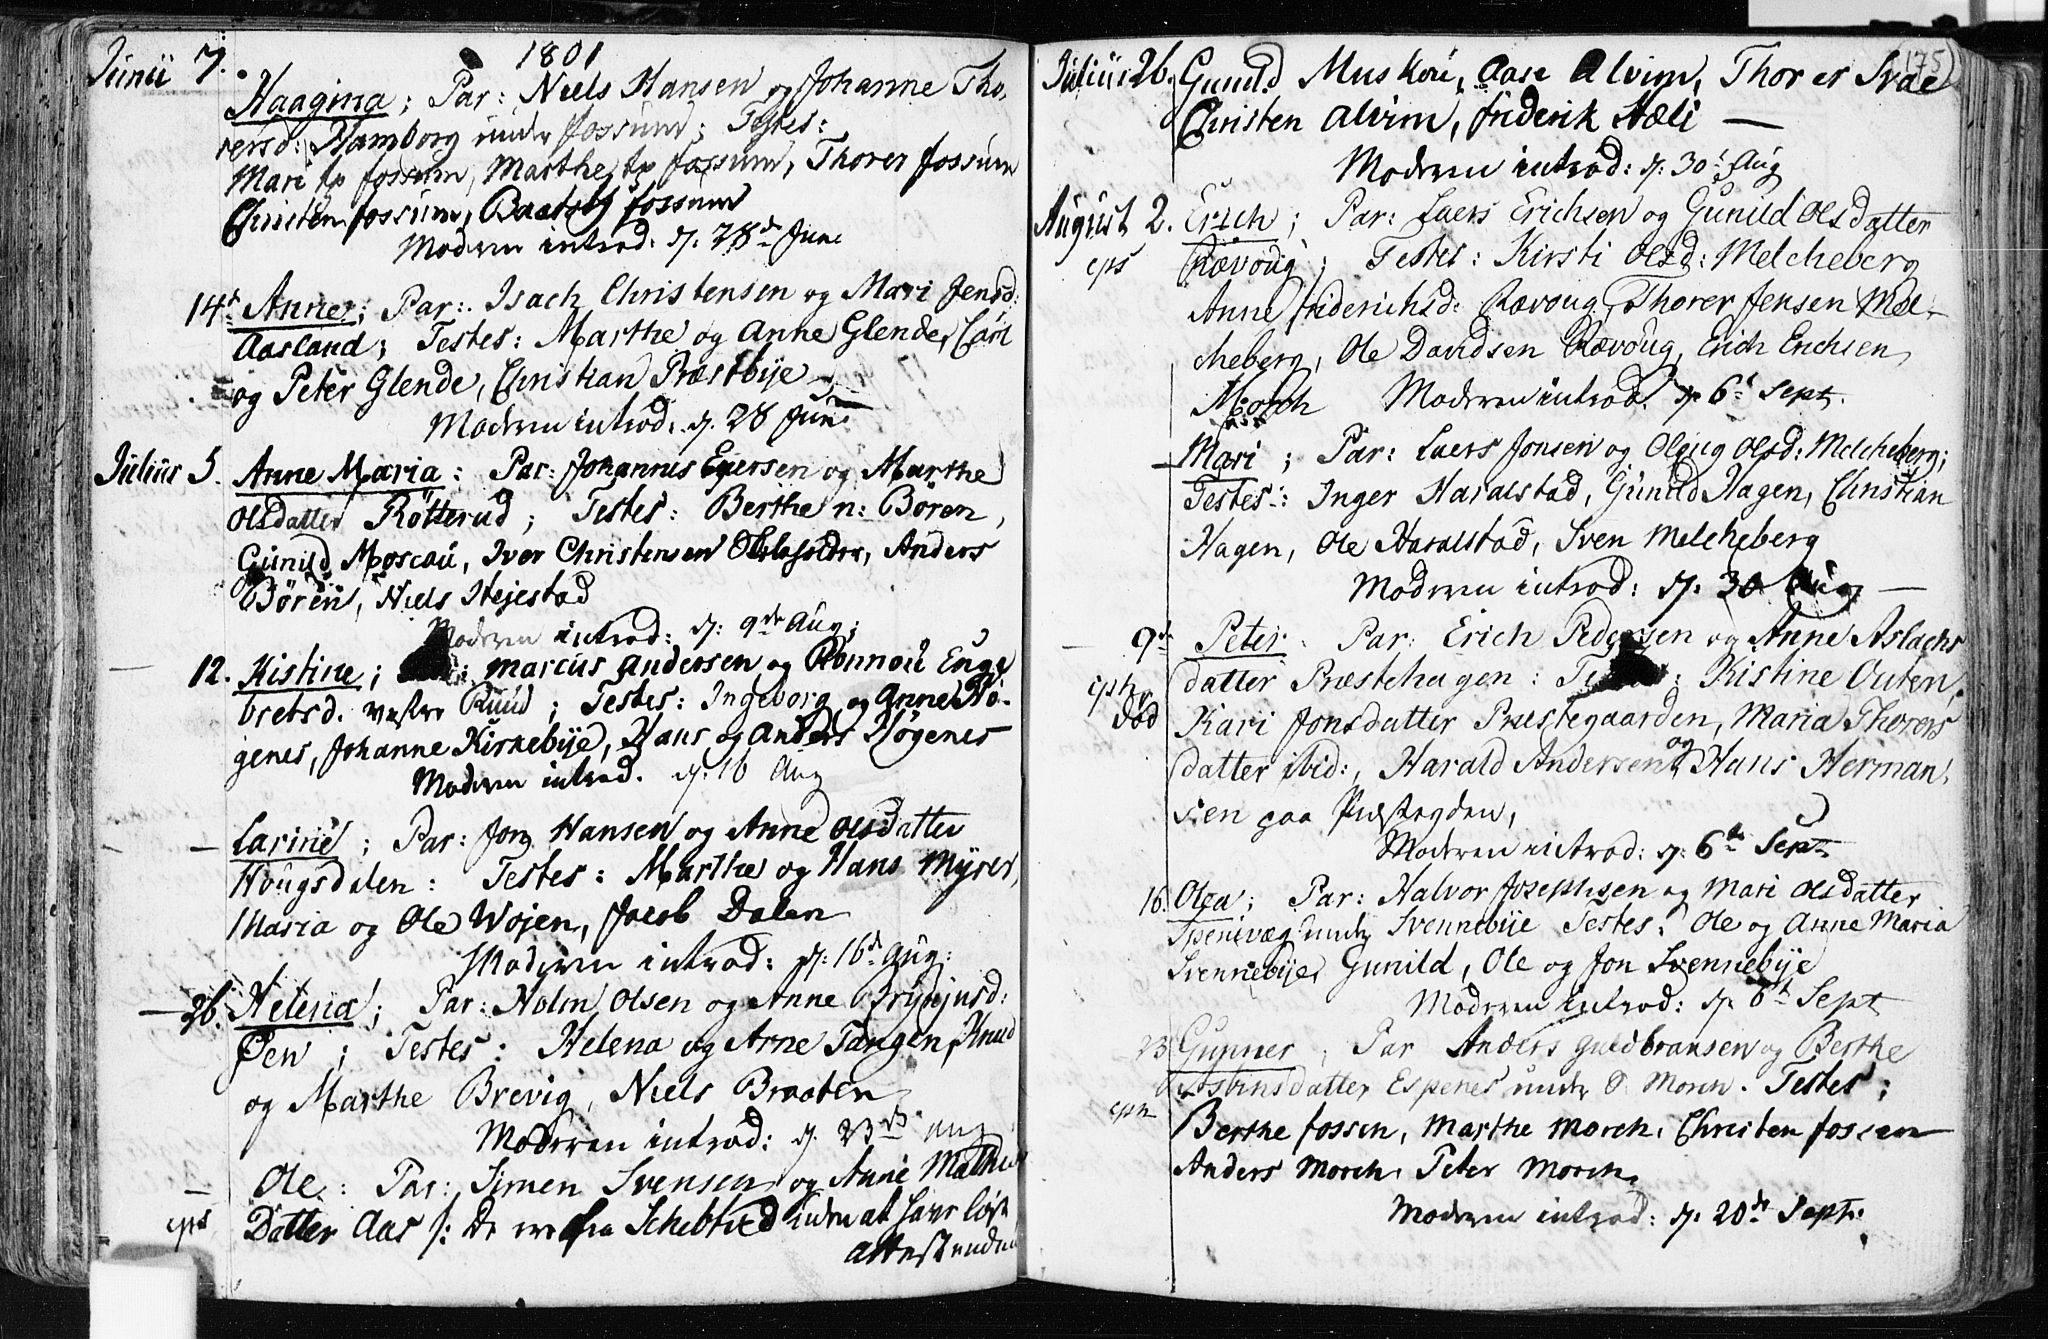 1801
Junii 7. Haagina; Par: Niels Hansen og Johanne Tho-
rersd: Hamborg under Fossum; Testes:
Mari Fossum, Marthe Fossum, Thorer Fossum
Christen Fossum, Fossum
Moderen introd: d: 28de June
14de Anne; Par: Isach Christensen og Mari Jensd:
Aasland; Testes: Marthe og Anne Glende, Carl
og Peter Glende, Christian Præstbye
Moderen introd: d. 28 Jun
Julius 5. Anne Maria: Par: Johannes Eversen og Marthe
Olsdatter Rötterud; Testes: Berthe n: Bören,
Gunild Moscau, Iver Christensen Anders
Bören, Niels Hejestad
Moderen introd: d: 9de Aug:
12. Kistine; Marcus Andersen og Rönnou Enge
bretsd. Ruud; Testes: Ingeborg og Anne Hö-
genes, Johanne Kirkebye, Hans og Anders Högenes
Moderen introd. d: 16 Aug
— Larine; Par: Jon Hansen og Anne Olsdatter
Hougsdalen: Testes: Marthe og Hans Myrer,
Maria og Ole Wojen, Jacob Dalen
Moderen introd: d: 16de Aug:
— 26. Helena; Par: Holm Olsen og Anne Brynjusd:
Öen; Testes: Helena og Arne Tangen, Knud
og Marthe Brevig, Niels Braaten
Moderen introd: d. 23de Aug
— Ole: Par: Simen Svensen og Anne Mathis
Datter Aas /: De ere fra Schebtved uden at have löst
attest endnu
175)
Julius 26. Gunild Muskou, Aase Alvim, Thorer Svae
Christen Alvim, Friderik Hæli —
Moderen introd: d: 30te Aug
August 2. Erich; Par: Laers Erichsen og Gunild Olsdatter
Rævoug; Testes: Kirsti Olsd: Melcheberg
Anne Friderichsd: Rævoug, Thorer Jensen Mel-
cheberg, Ole Davidsen Rævoug, Erich Erichsen
Morch Moderen introd. d. 6te Sept.
— Mari; Par: Laers Jonsen og Oloug Olsd: Melcheberg;
Testes: Inger Haralstad, Gunild Hagen, Christian
Hagen, Ole Haralstad, Sven Melcheberg
Moderen introd: d. 30 Aug —
9de Peter. Par: Erich Pedersen og Anne Aslachs
datter Præstehagen: Kistine Outen,
död Kari Jonsdatter Præstegaarden, Maria Thorers
datter ibid:, Harald Andersen og Hans Herman,
sen paa Præstegden,
Moderen introd: d: 6te Sept
16. Olea; Par: Halvor Josephsen og Mari Olsdatter
under Svennebye Testes: Ole og Anne Maria
Svennebye, Gunild, Ole og Jon Svennebye
Moderen introd: d. 6te Sept
23 Gunner, Par Anders Guldbransen og Berthe
Espenes under Morch. Testes:
Berthe Fossen, Marthe Morch, Christen Fossen
Anders Morch, Peter Morch
Moderen introd: d. 20de Sept.